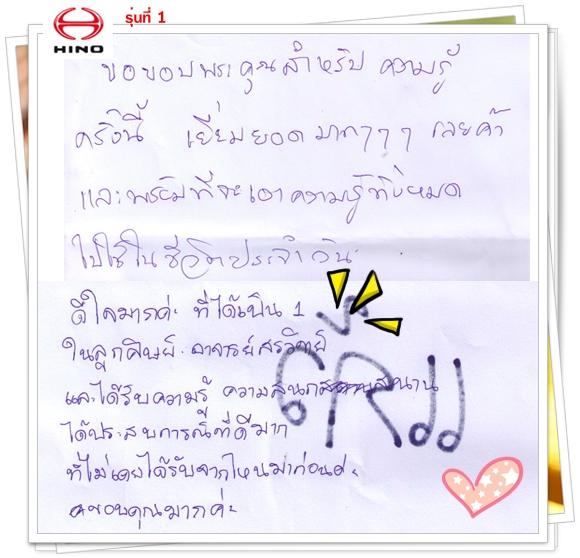 HINO
รุ่นที่ 1
ขอขอบพระคุณสำหรับ ความรู้
ครั้งนี้ เยี่ยมยอดมากๆๆๆ เลยค้า
และพร้อมที่จะเอาความรู้ทั้งหมด
ไปใช้ในชีวิตประจำวัน
ดีใจมากค่ะ ที่ได้เป็น 1
ในลูกศิษย์ อาจารย์สรวิตย์
และได้รับความรู้ ความสนุกสนาน
ได้ประสบการณ์ที่ดีมาก
ที่ไม่เคยได้รับจากไหนมาก่อนค่ะ
ขอบคุณมากค่ะ